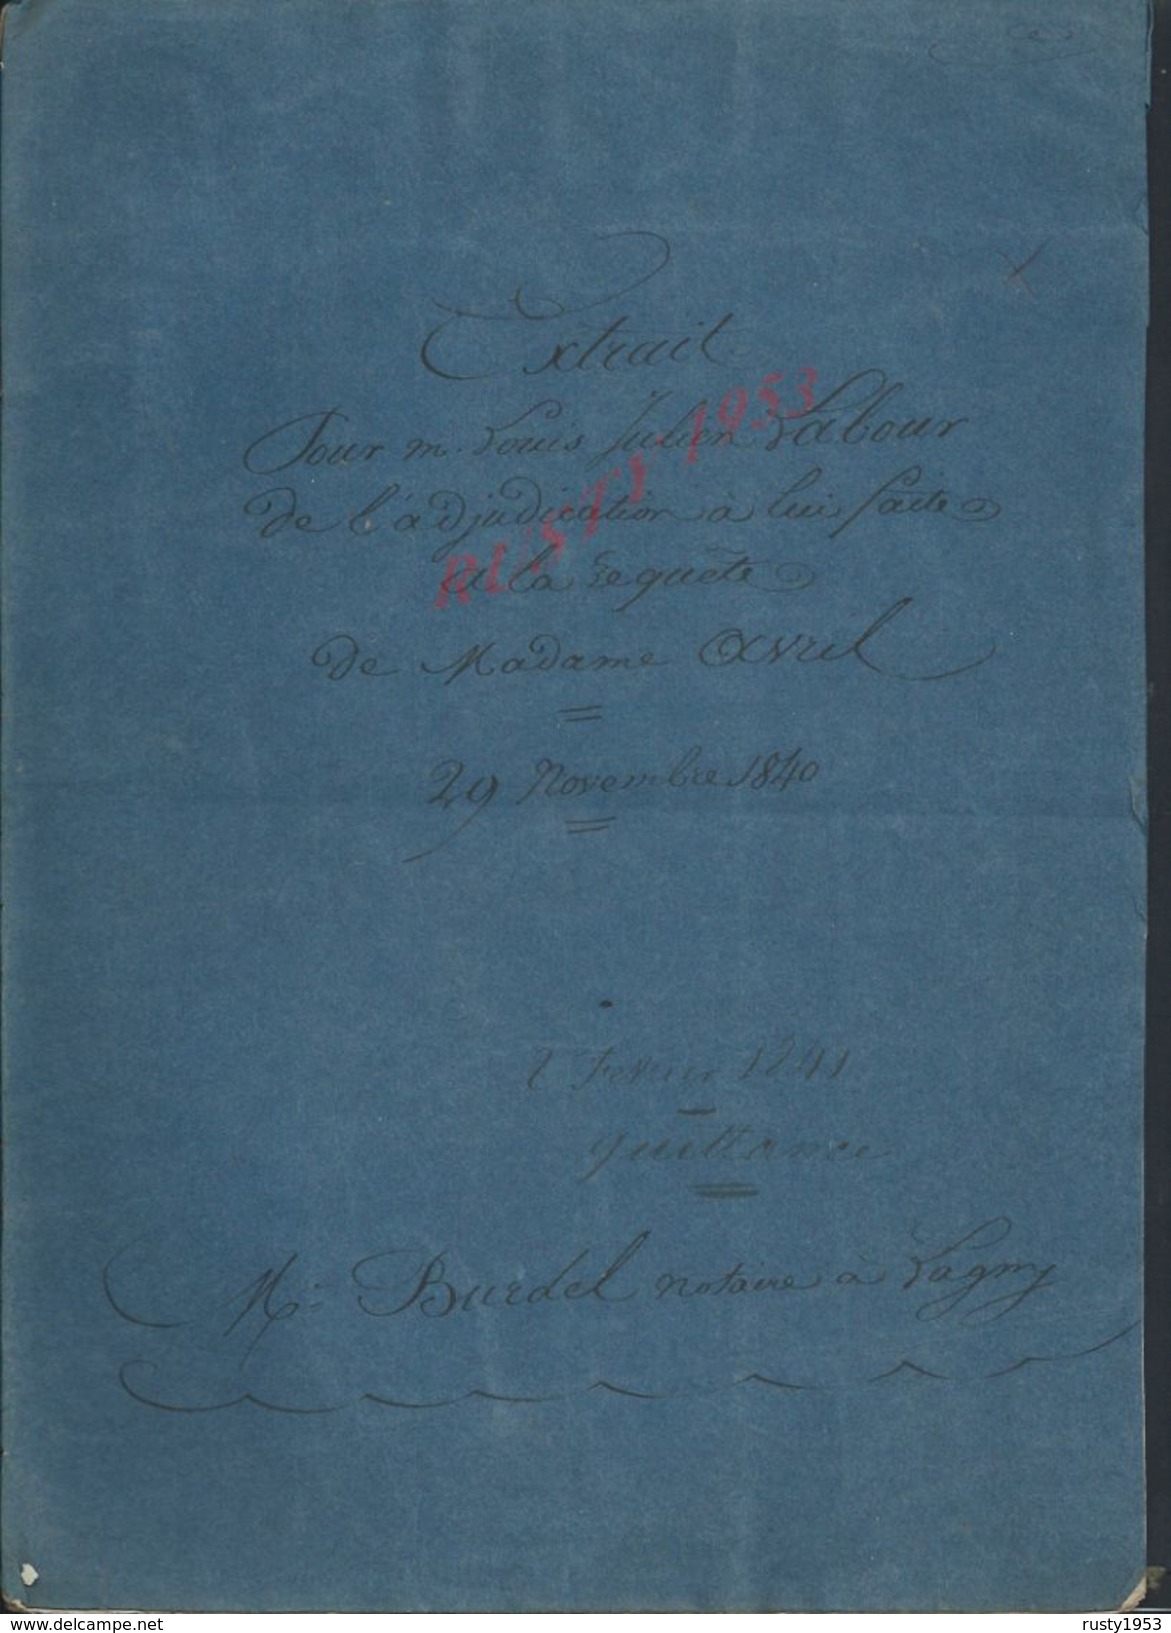 Extrait
Pour m. Louis Julien Labour
de l'adjudication à lui faite
à la requête
de Madame Avril
29 Novembre 1840
RUSTY 1953
Fevrier 1841
quittance
Me Burdel notaire à Lagny
delcampe.net
rusty1953